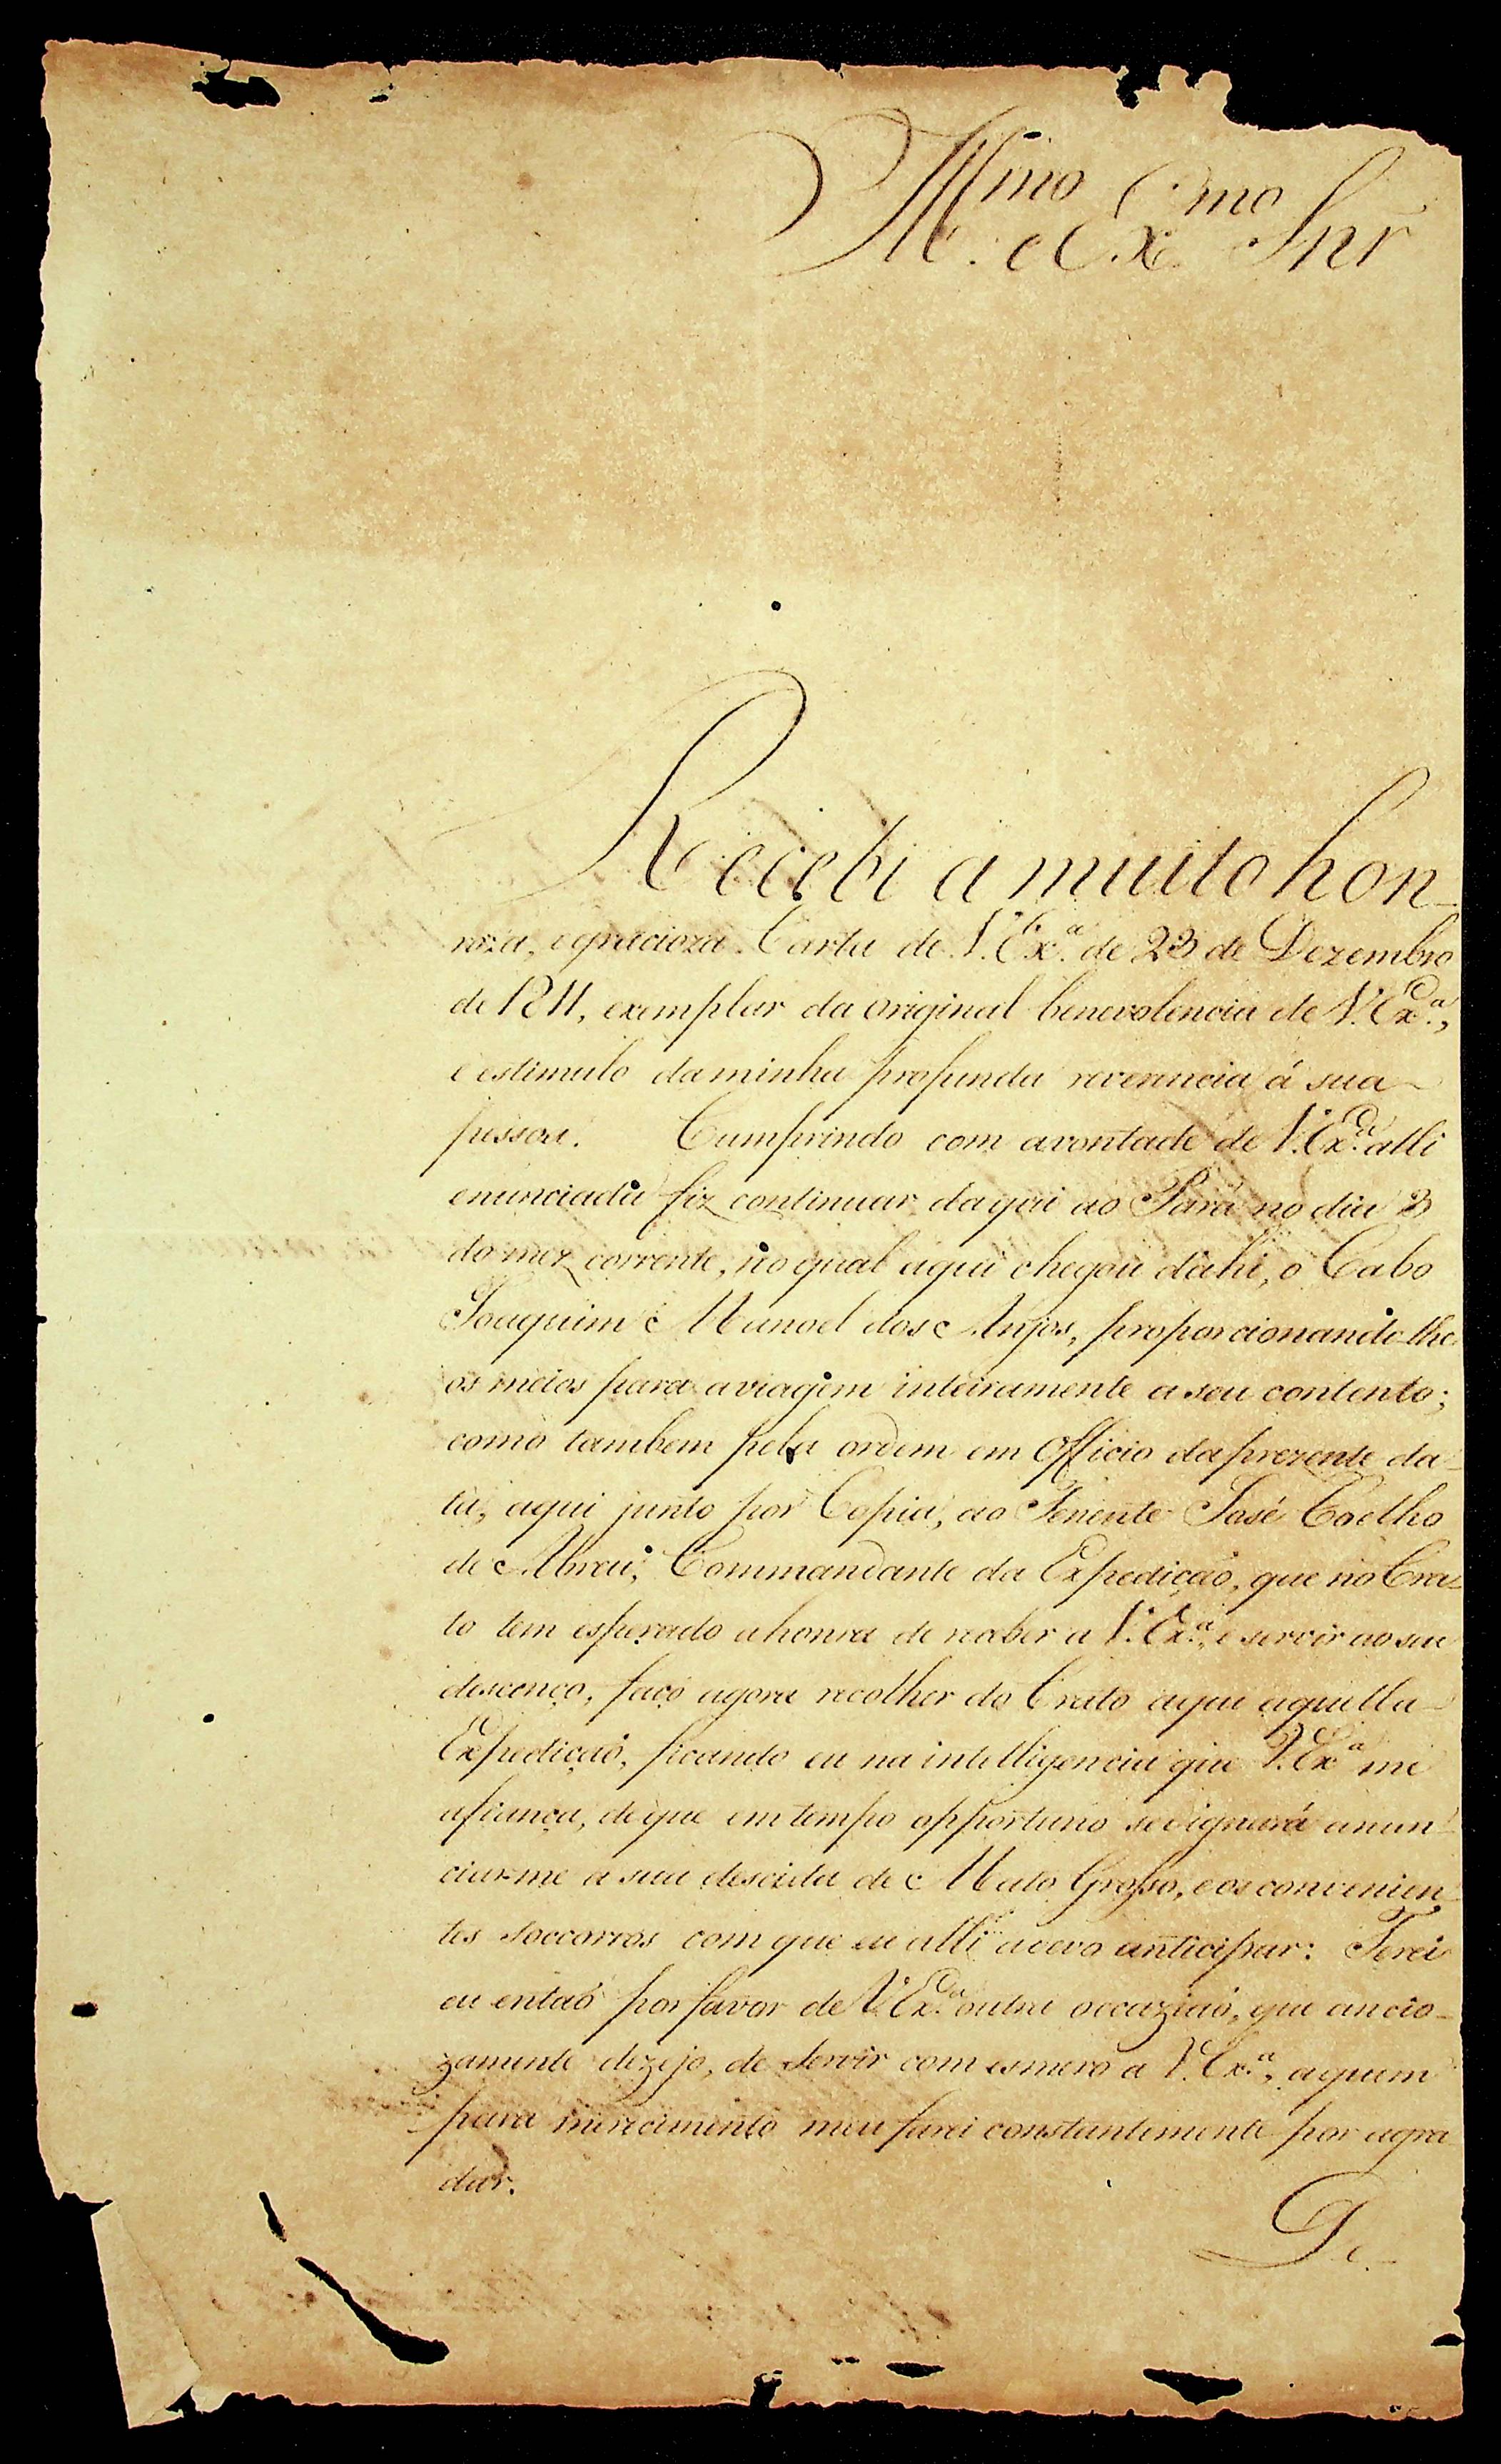 Illmo e Exmo Snr
Recebi a muito hon-
roza, e gracioza Carta de V. Exª. de 23 de Dezembro
de 1811, exemplar da original benevolencia de V. Exª.,
e estimulo da minha profunda reverencia á sua
pessoa. Cumprindo com a vontade de V. Exª. alli
enunciada fiz continuar daqui ao Pará no dia 3
do mez corrente, no qual aqui chegou dahi, o Cabo
Joaquim Manoel dos Anjos, proporcionando-lhe
os meios para a viagem inteiramente a seu contento;
como tambem pela ordem em Officio da prezente da-
ta, aqui junto por Copia, ao Tenente José Coelho
de Abreu, Commandante da Expedição, que no Cra-
to tem esperado a honra de receber a V. Exª., e servir ao seu
descenço, faço agora recolher do Crato aqui aquella
Expedição, ficando eu na intelligencia que V. Exª me
afiança, de que em tempo opportuno se dignará anun-
ciar-me a sua descida de Mato Grosso, e os convenien-
tes soccorros com que eu alli devo anticipar: Terei
eu então por favor de V. Exª. outra occazião, que ancio-
zamente dezejo, de servir com esmero a V. Exª., a quem
para merecimento meu farei constantemente por agra
dar.
De-